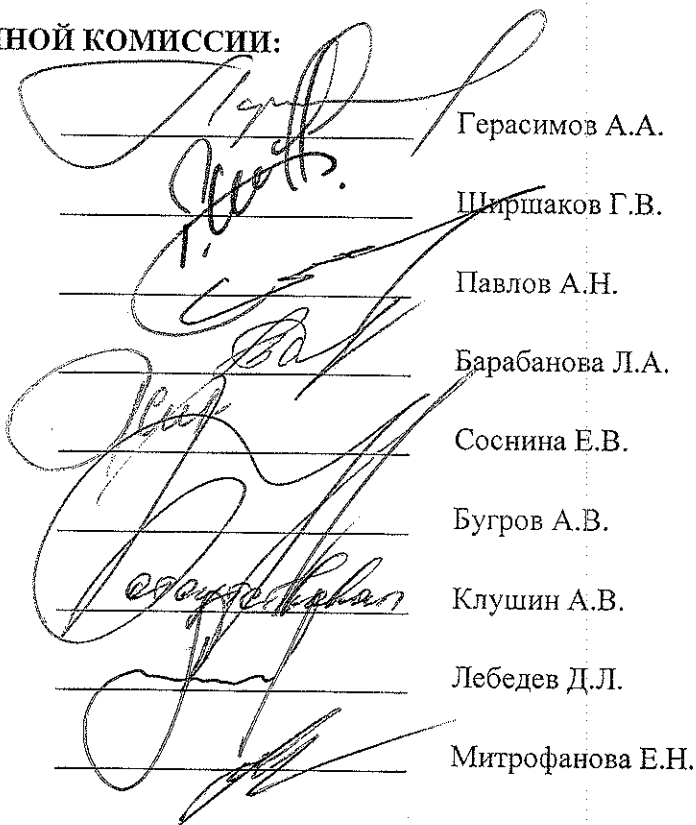 НОЙ КОМИССИИ:
Герасимов А.А.
Ширшаков Г.В.
Павлов А.Н.
Барабанова Л.А.
Соснина Е.В.
Бугров А.В.
отсутствовал Клушин А.В.
Лебедев Д.Л.
Митрофанова Е.Н.